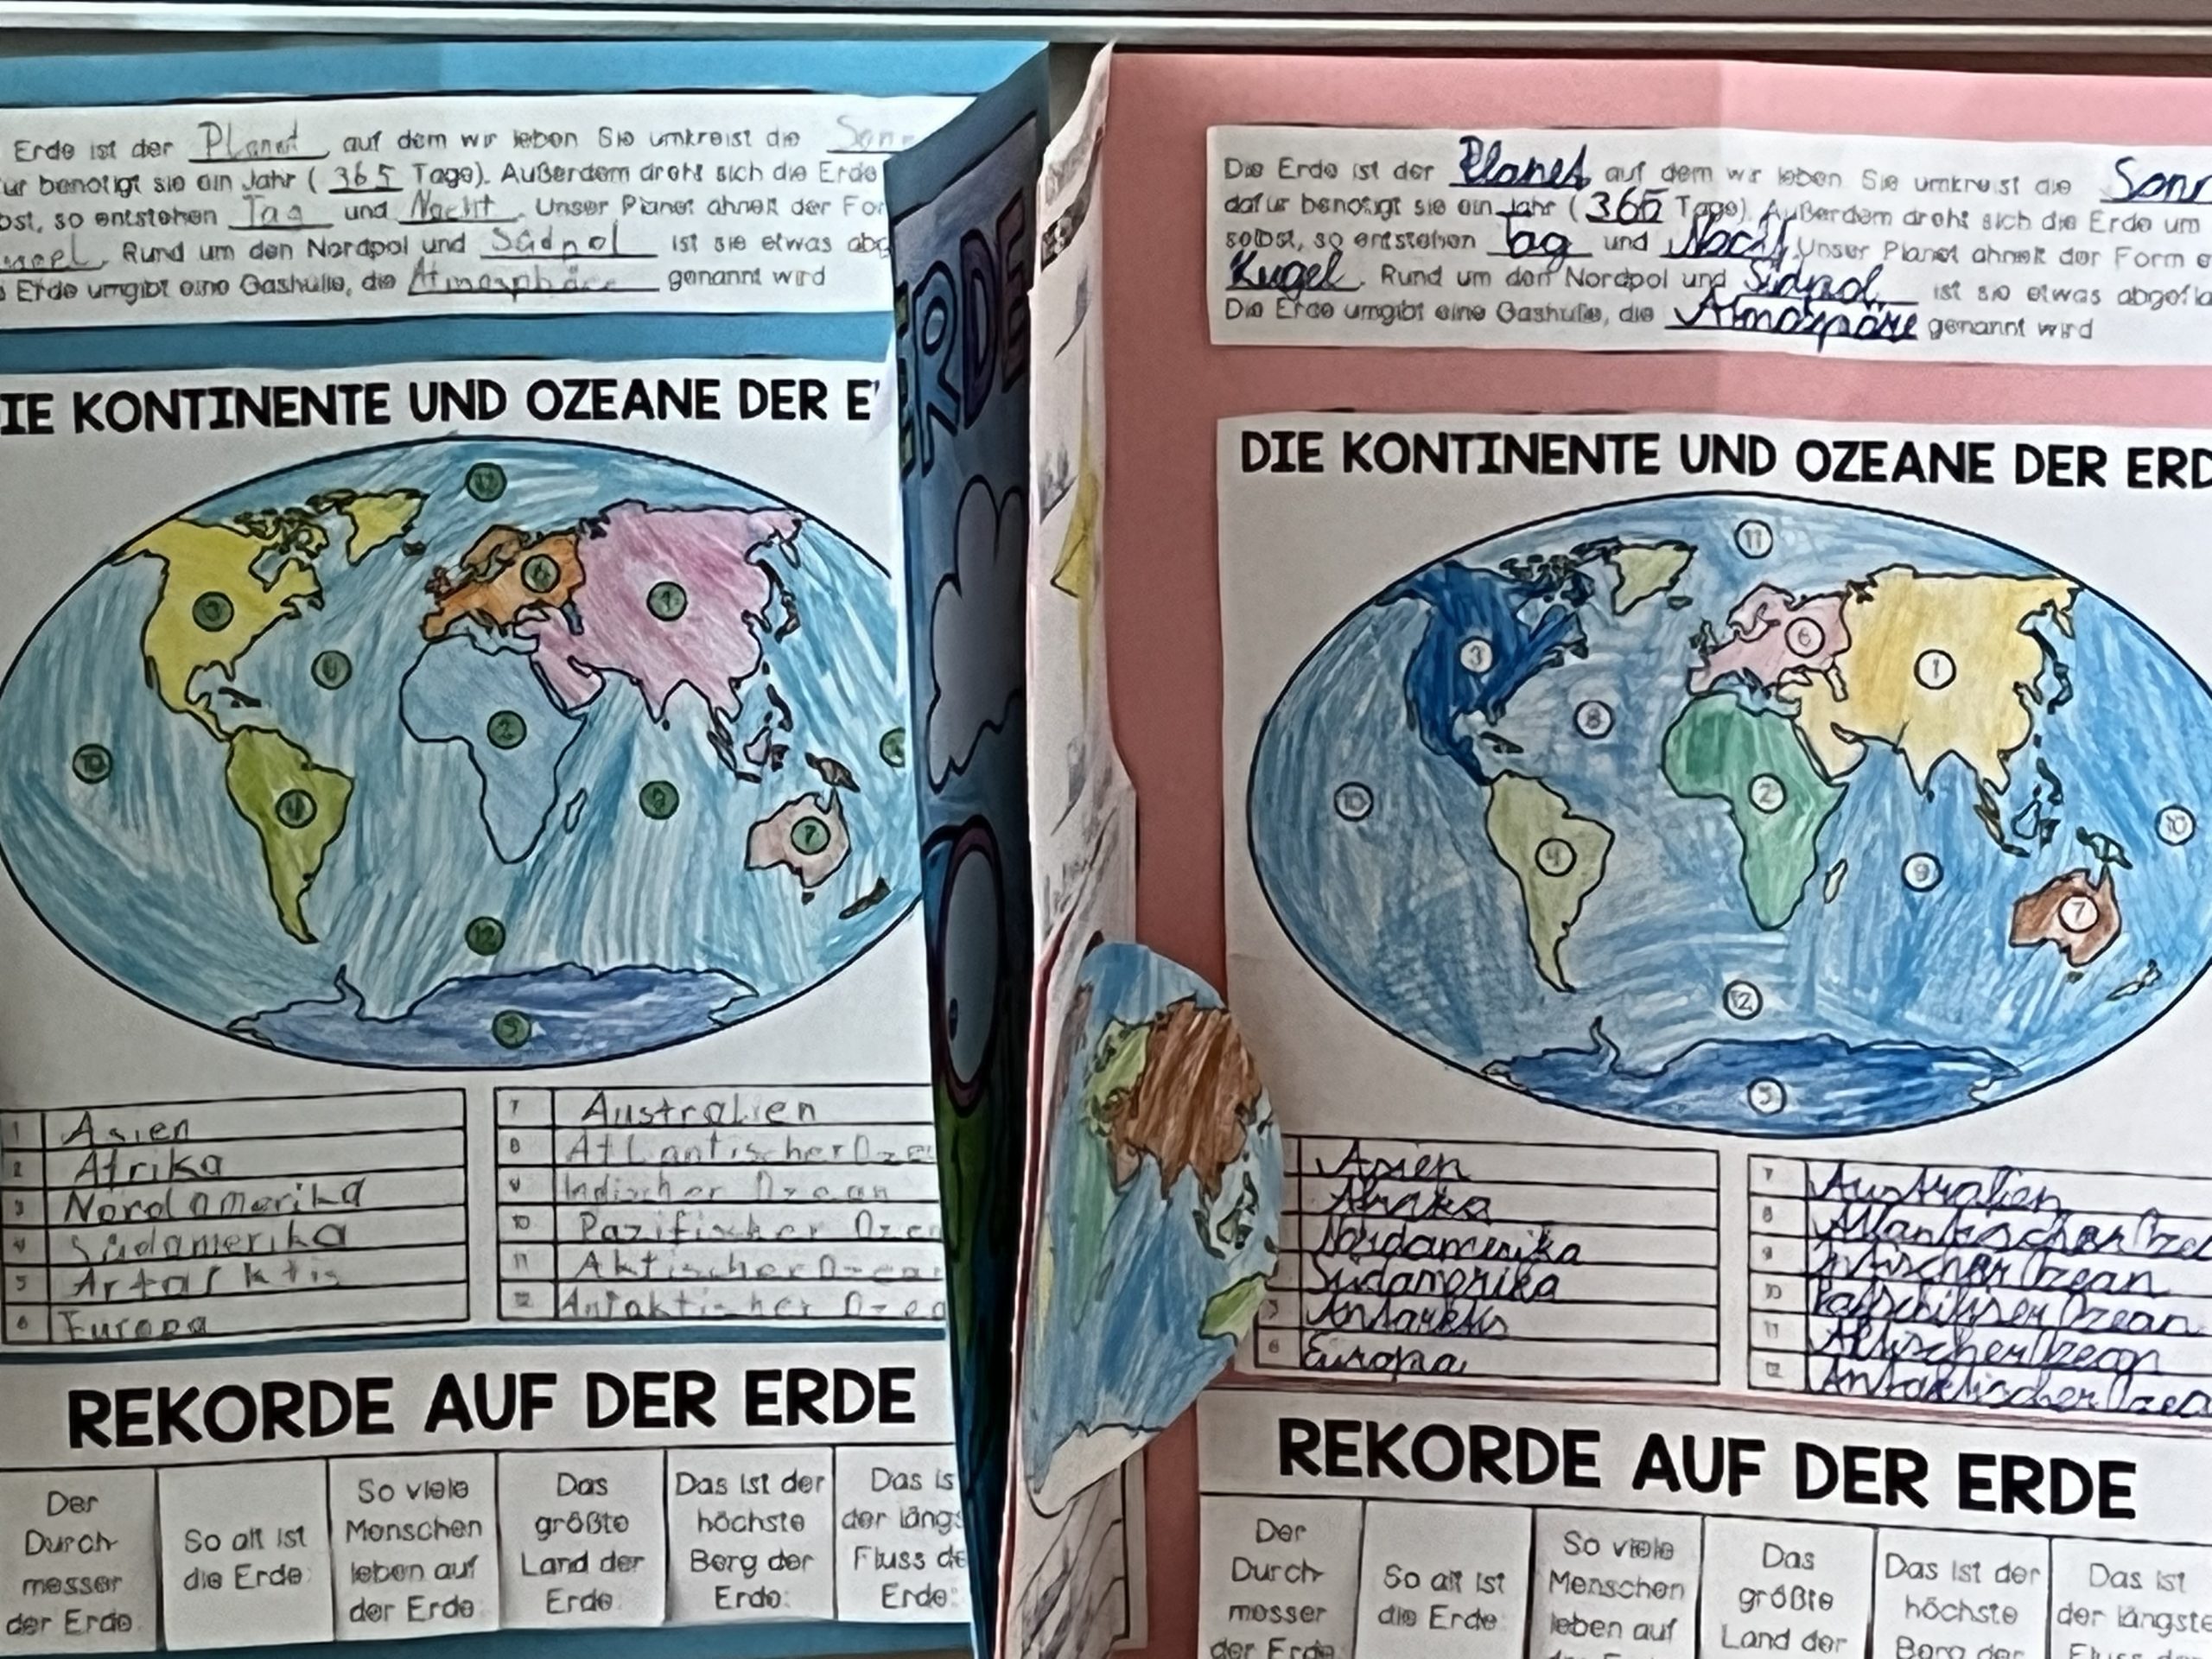 Erde ist der Planet, auf dem wir leben Sie umkreist die
benötigt sie ein Jahr (365 Tage). Außerdem dreht sich die Erde
so entstehen Tag und Nacht. Unser Planet ähnelt der
Rund um den Nordpol und Südpol ist sie etwas
Erde umgibt eine Gashülle, die Atmosphäre genannt wird
KONTINENTE UND OZEANE DER
11
3
6
1
8
2
10
9
4
7
12
5
1 Asien
2 Afrika
3 Nordamerika
4 Südamerika
5
6 Europa
7 Australien
8 Atlantischer
9 Indischer Ozean
10 Pazifischer
11 Aktischer
12 Antaktischer
REKORDE AUF DER ERDE
Der
Durch-
messer
der Erde:
So alt ist
die Erde:
So viele
Menschen
leben auf
der Erde:
Das
größte
Land der
Erde:
Das ist der
höchste
Berg der
Erde:
Das
der
Fluss
Erde:
ERDE
Die Erde ist der Planet, auf dem wir leben Sie umkreist die
dafür benötigt sie ein Jahr (365 Tage). Außerdem dreht sich die Erde um
selbst, so entstehen Tag und Nacht. Unser Planet ähnelt der Form
Kugel. Rund um den Nordpol und Südpol ist sie etwas
Die Erde umgibt eine Gashülle, die Atmospäre genannt wird
DIE KONTINENTE UND OZEANE DER
11
3
6
1
8
2
10
10
9
4
7
12
5
Asien
Nordamerika
Südamerika
5 Antarktis
6 Europa
7 Australien
8 Atlantischer
9 Ozean
10 Ozean
11 Ozean
12 Antarktischer
REKORDE AUF DER ERDE
Der
Durch-
messer
der Erde:
So alt ist
die Erde:
So viele
Menschen
leben auf
Das
größte
Land der
Das ist der
höchste
Berg der
Das ist
der längste